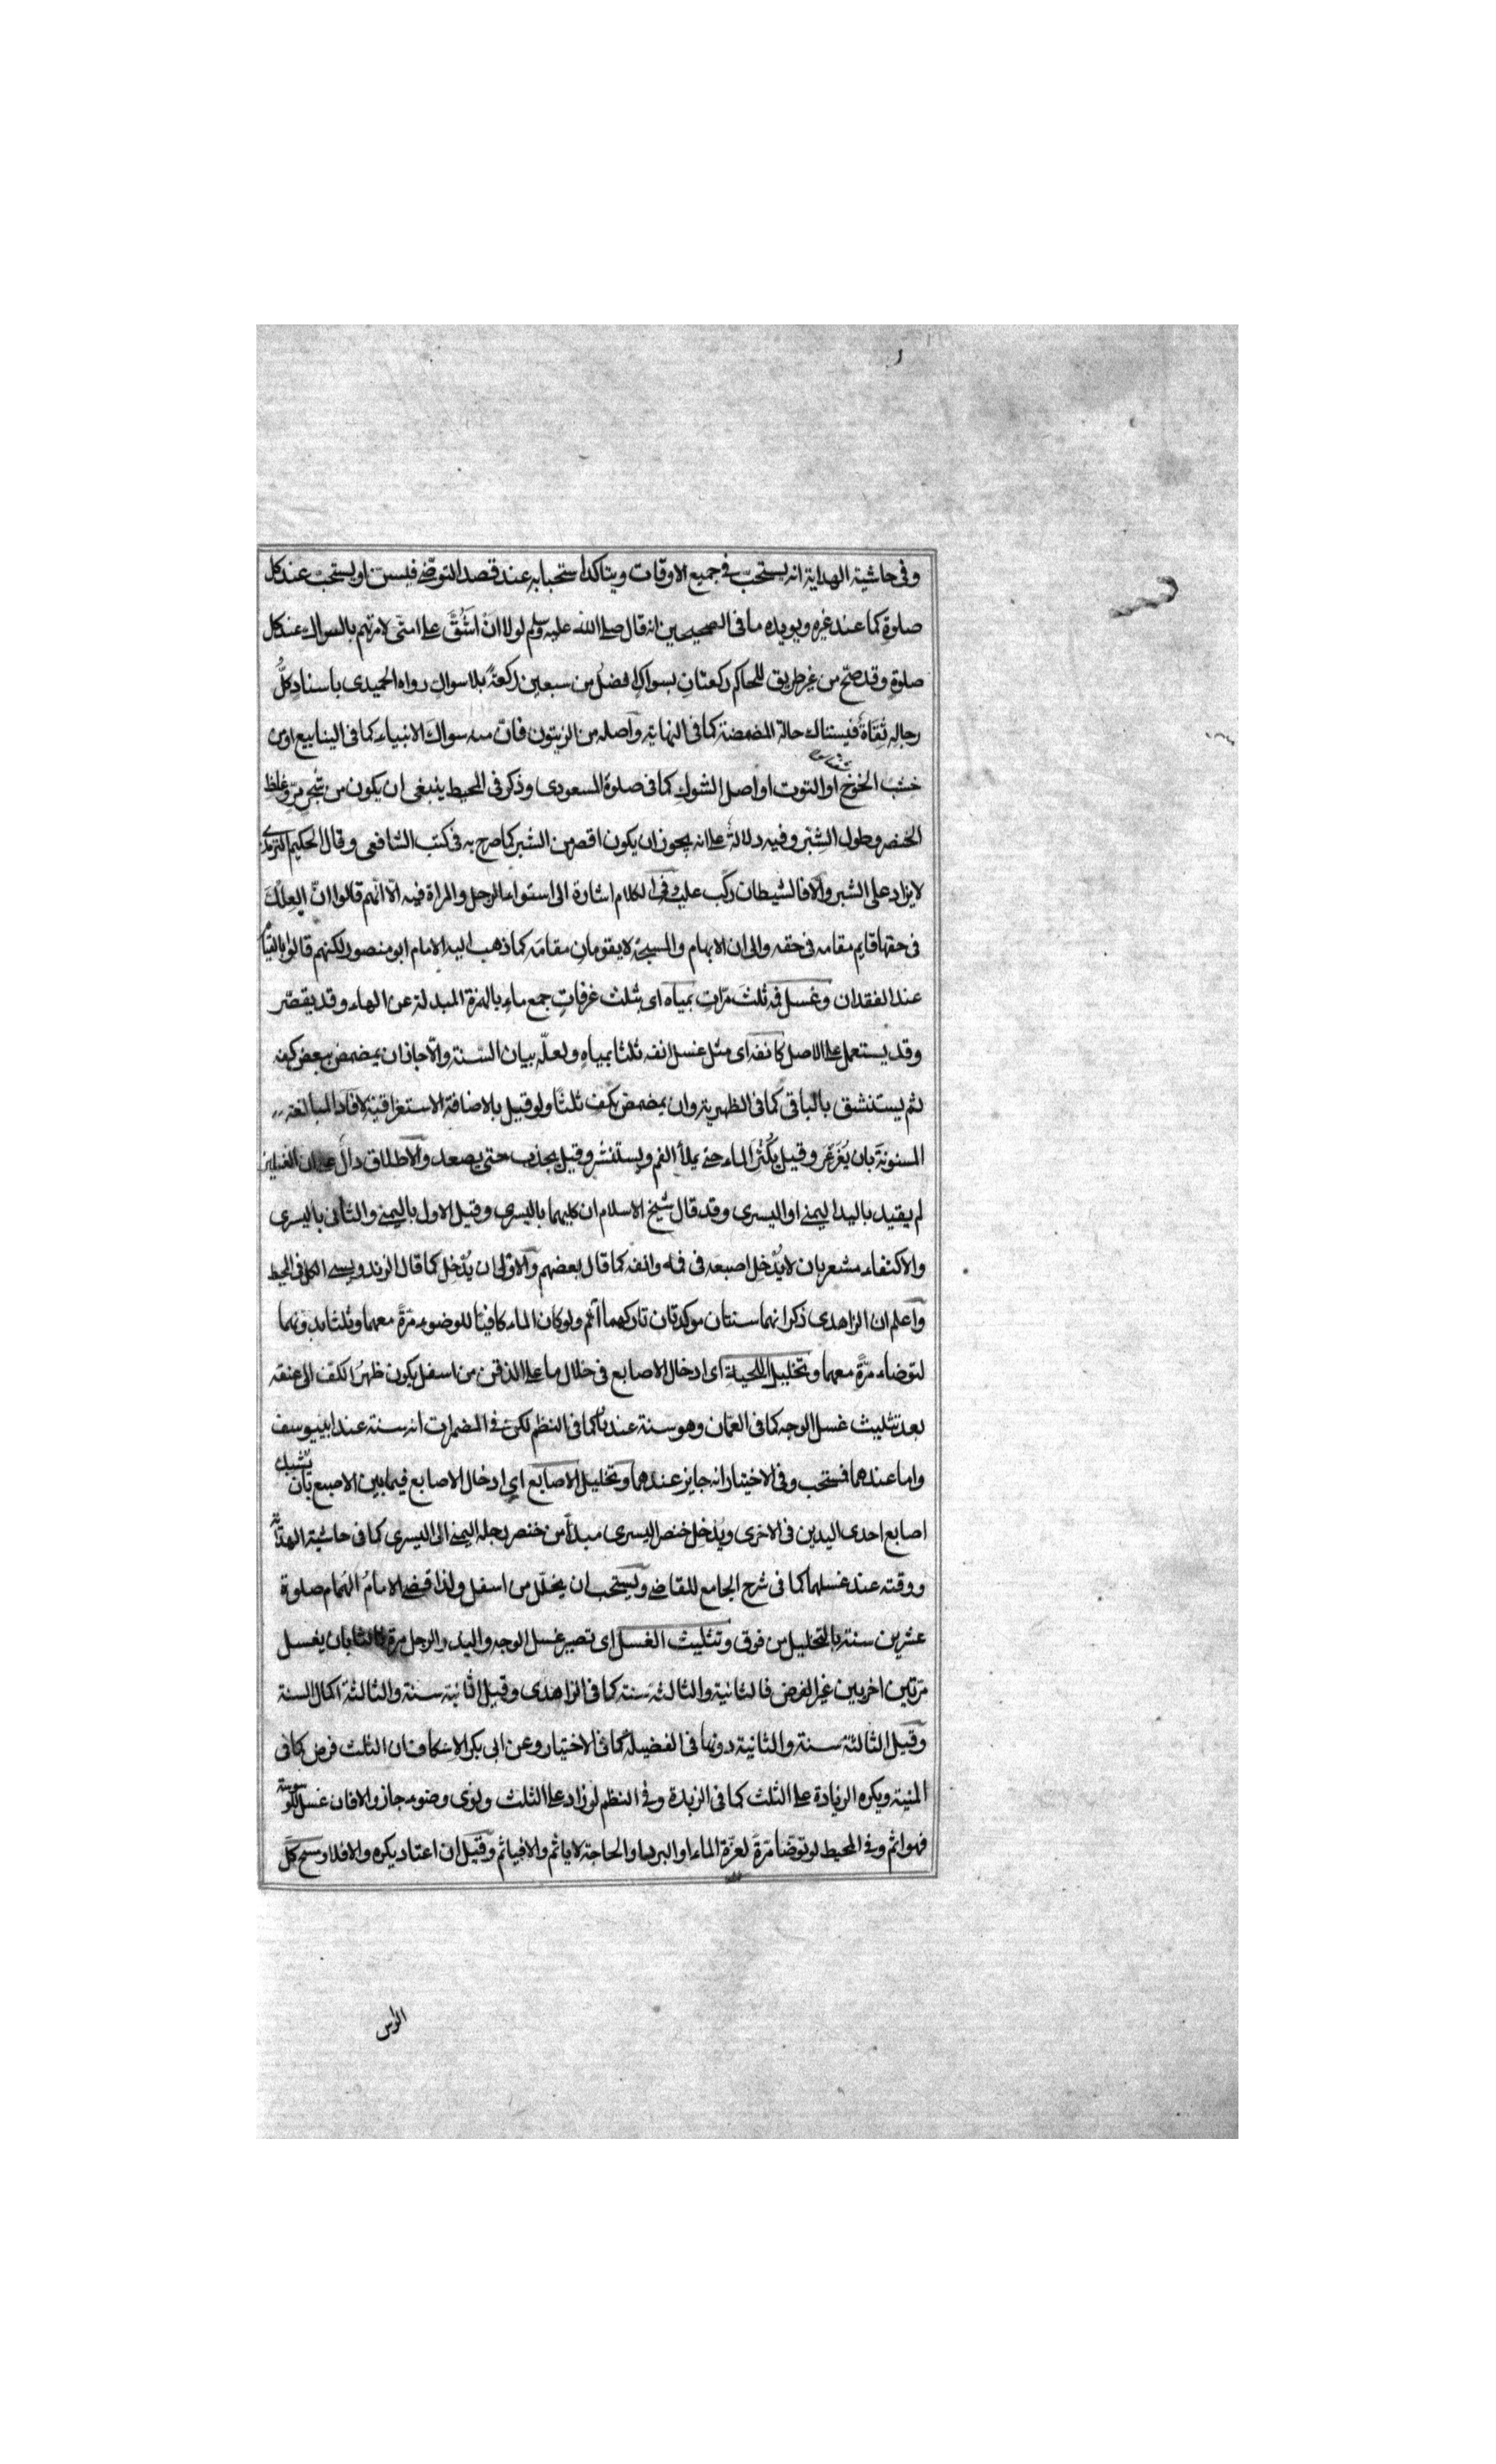 وفى حاشية الهداية انه يستحب فى جميع الاوقات ويتاكد استحبابه عند قصد التوضى فيسن او يستحب عند كل
صلوة كما عند غيره ويويده ما فى الصحيحين انه قال صلى الله عليه وسلم لولا اَنْ اَشُقَّ على امتى لامرتهم بالسواك عند كل
صلوة وقد صح من غير طريق للحاكم ركعتانِ بسواكٍ افضلُ من سبعين ركعةً بلا سواكٍ رواه الحميدى باسنادٍ كلُّ
رجالِه ثِقَاةٌ فيستاك حالة المضمضة كما فى النهاية واصله من الزيتون فانّ منه سواكَ الانبياء كما فى الينابيع او من
خشب الخوخ او التوت او اصل الشوك كما فى صلوة المسعودى وذكر فى المحيط ينبغى ان يكون من شجرٍ مرٍّ وغلظِ
الخنصر وطول الشِبْر وفيه دلالةٌ على انه يجوز ان يكون اقصر من الشبر كما صرح به فى كتب الشافعى وقال الحكيم الترمذى
لا يزاد على الشبر والّا فالشيطان ركّب عليه وفى الكلام اشارة الى استواء الرجل والمراة فيه الّا انّهم قالوا انّ العِلْكَ
فى حقها قايم مقامه فى حقه والى ان الابهام والمسبحة لا يقومانِ مقامَه كما ذهب اليه الامام ابو منصور لكنهم قالوا بالقيا
عند الفقدان وغسل فمه ثلثَ مرّاتٍ بمياه اى بثلث غرفاتٍ جمع ماءٍ بالهمزة المبدلة عن الهاء وقد يقصّر
وقد يستعمل على الاصل كانفه اى مثل غسل انفه ثلثا بمياهٍ ولعلّه بيان السّنة والّا جاز ان يمضمض ببعض كفه
ثم يستنشق بالباقى كما فى الظهيرية وان يمضمض بكف ثلثًا ولو قيل بالاضافة الاستغراقية لافاد المبالغة
المسنونة بان يُغَرْغِرَ وقيل يُكْثِرَ الماء حتى يملأ الفم ويستنثر وقيل يجذب حتى يصعد والاطلاق دالٌّ على ان الغسلين
لم يقيد باليد اليمنى او اليسرى وقد قال شيخ الاسلام ان كليهما باليسرى وقيل الاول باليمنى والثانى باليسرى
والاكتفاء مشعر بان لا يُدْخِل اصبعه فى فمه وانفه كما قال بعضهم والاولى ان يُدْخِل كما قال الزندويستى الكل فى المحيط
واعلم ان الزاهدى ذكر انهما سنتان موكدتان تاركهما آثم ولو كان الماء كافيًا للوضوء مرّةً معهما وثلثا بدونهما
لتوضاء مرّةً معهما وتخليل اللحية اى ادخال الاصابع فى خلال ما على الذقن من اسفل يكون ظهرُ الكف الى عنقه
بعد تثليث غسل الوجه كما فى العمّان وهو سنة عندنا كما فى النظم لكن فى المضمرات انه سنة عند ابى يوسف
واما عندهما فمستحب وفى الاختيار انه جايز عندهما وتخليل الاصابع اي ادخال الاصابع فيما بين الاصبع بان تشبك
اصابع احدى اليدين فى الاخرى ويُدْخِل خنصر اليسرى مبدأً من خنصر رجله اليمنى الى اليسرى كما فى حاشية الهداية
ووقته عند غسلهما كما فى شرح الجامع للقاضى ويستحب ان يخلّل من اسفل ولذا قضى الامامُ الهمام صلوة
عشرين سنة بالتخليل من فوق وتثليث الغسل اى تصيير غسل الوجه واليد والرجل مرة ثالثا بان يغسل
مرتين اخريين غير الفرض فالثانية والثالثة سنة كما فى الزاهدى وقيل الثانية سنة والثالثة اكمال السنة
وقيل الثالثة سنة والثانية دونها فى الفضيلة كما فى الاختيار وعن ابى بكر الاسكاف ان الثلث فرض كما فى
المنية ويكره الزيادة على الثلث كما فى الزبدة وفى النظم لو زاد على الثلث ونوى وضوء جاز والا فان غسل للوسوسة
فهو اثم وفى المحيط لو توضّأ مرّةً لعزّة الماء او البرد او الحاجة لا ياثم والا فياثم وقيل ان اعتاد يكره والا فلا ومسح كلّ
الراس